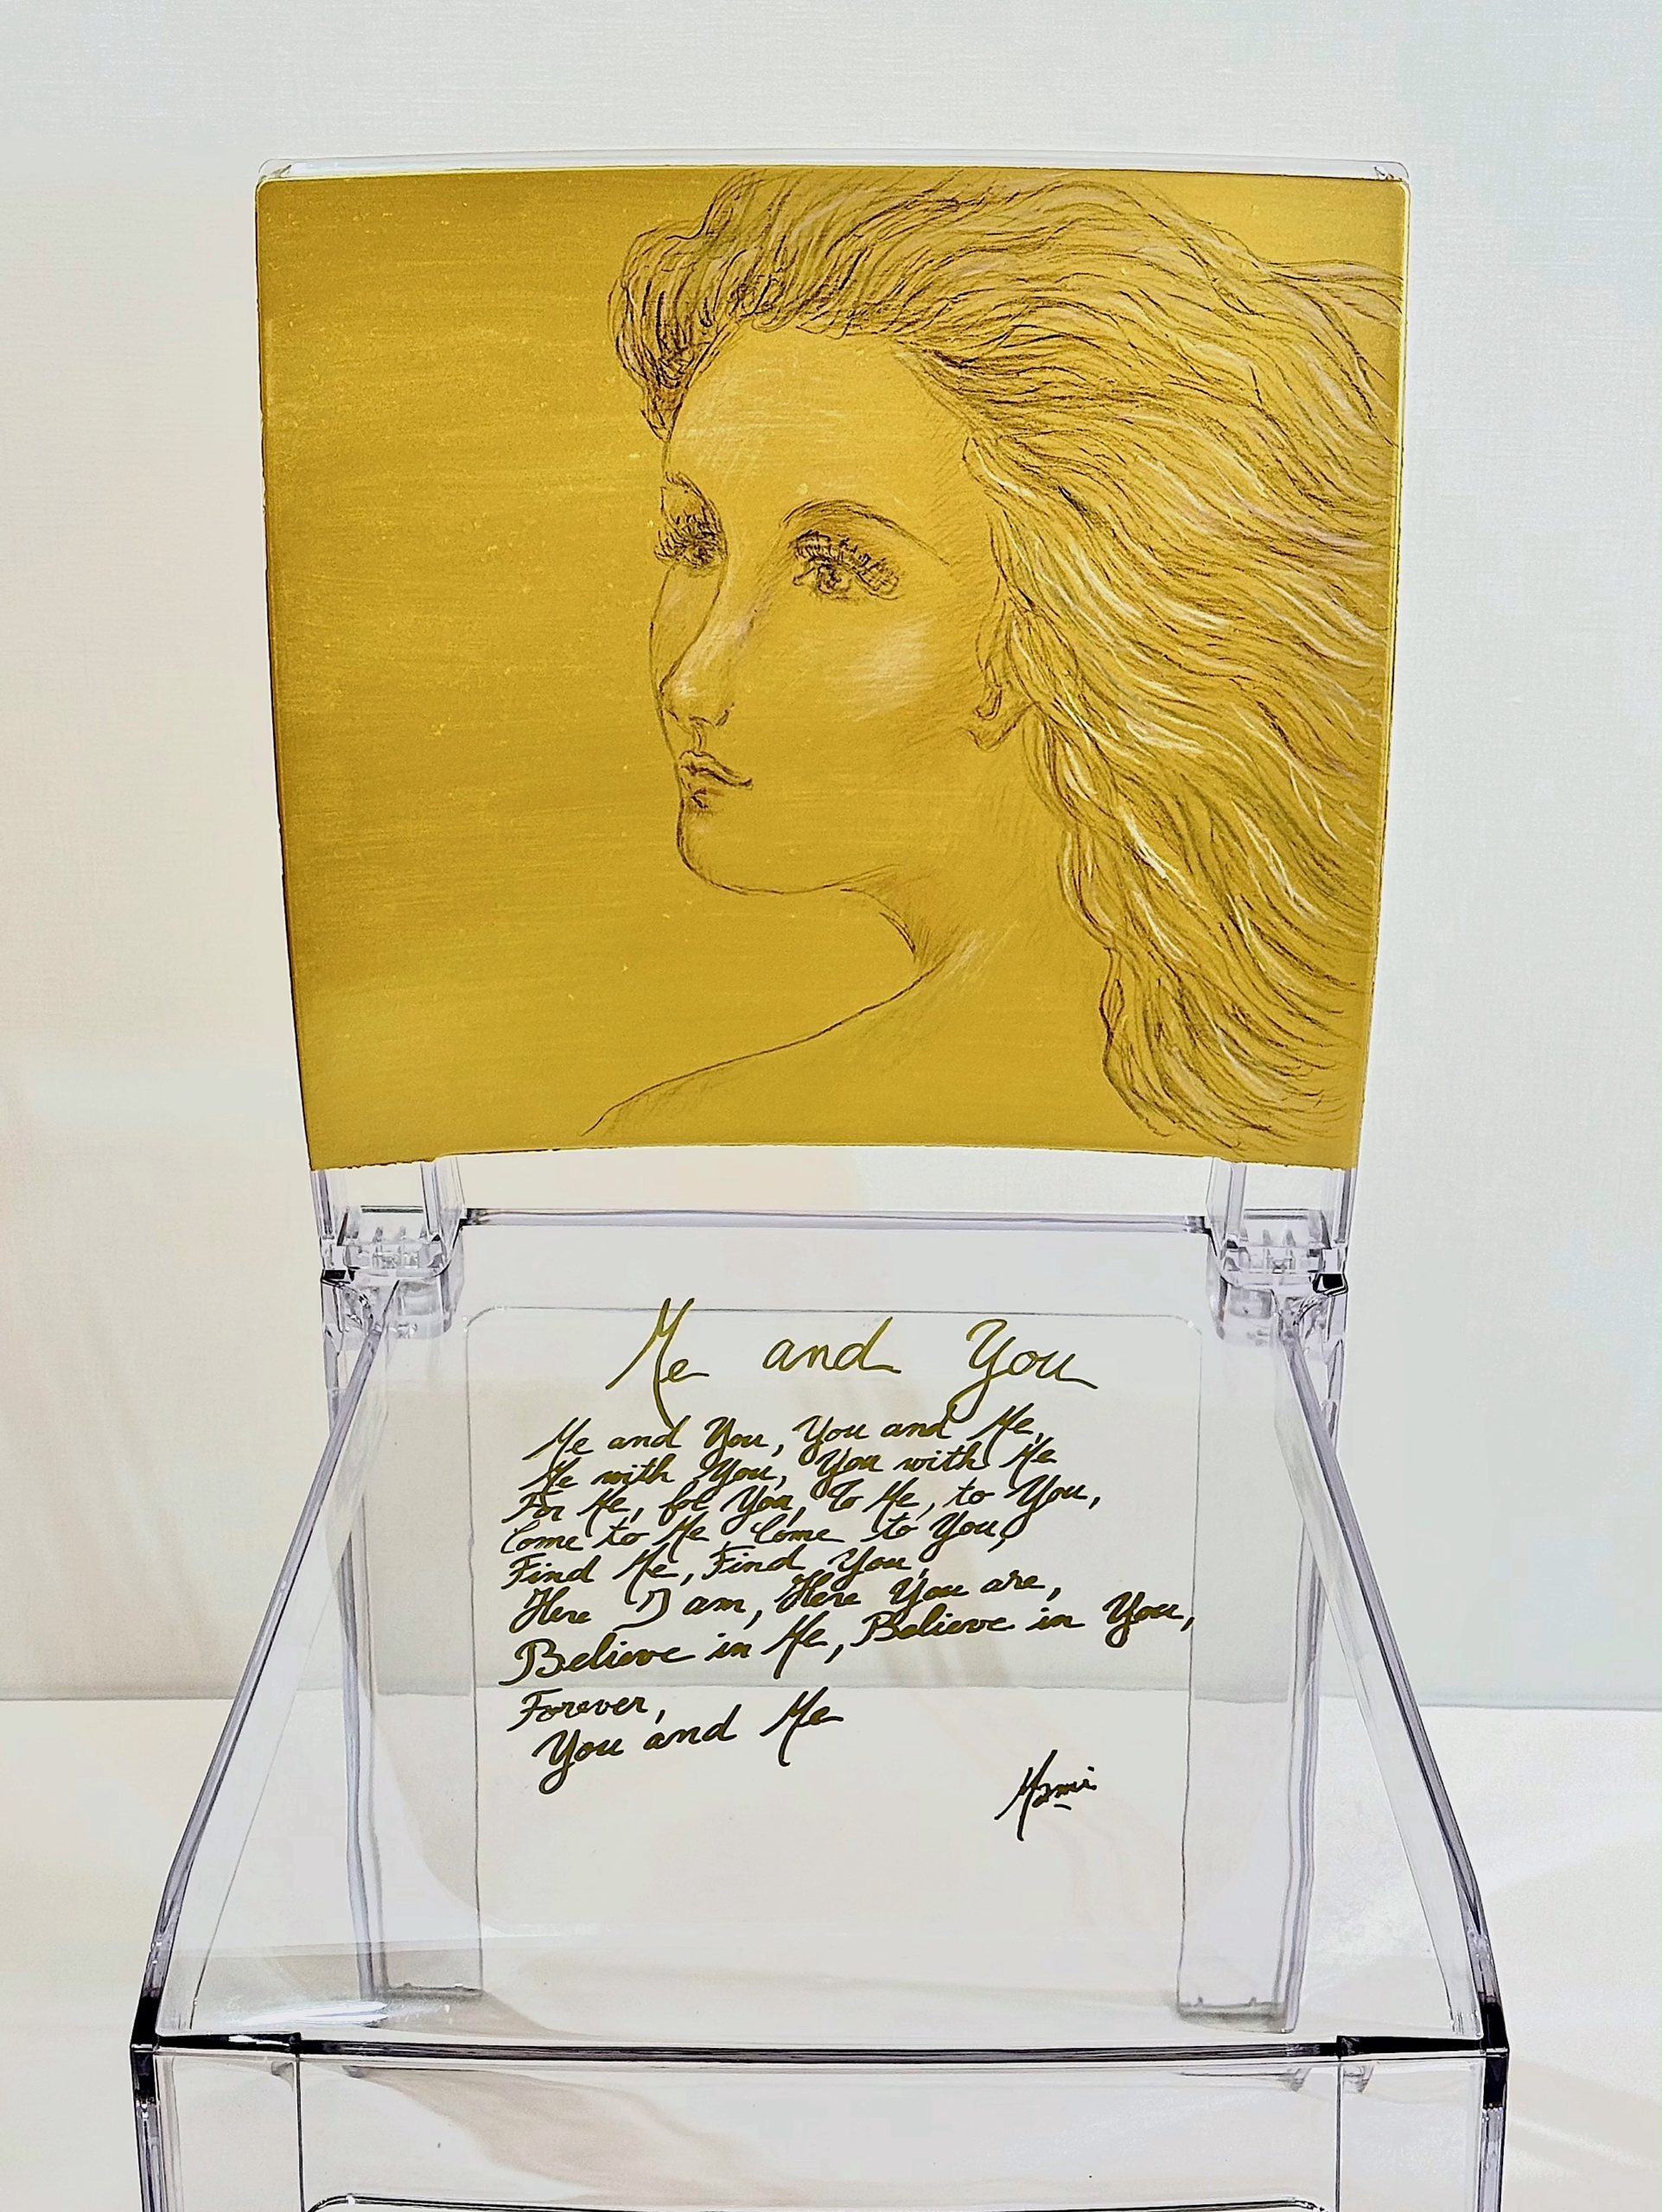 Me and You
Me and You, You and Me,
Me with You, You with Me
For Me, for You, To Me, to You,
Come to Me, Come to You,
Find Me, Find You,
Here I am, Here You are,
Believe in Me, Believe in You,
Forever,
You and Me
Mami